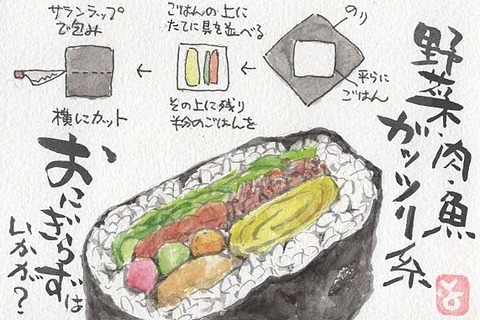 野菜・肉・魚
ガッツリ系
のり
平らに
ごはん
ごはんの上に
たてに具を並べる
その上に残り
半分のごはんを
サランラップ
で包み
横にカット
おにぎらずは
いかが?